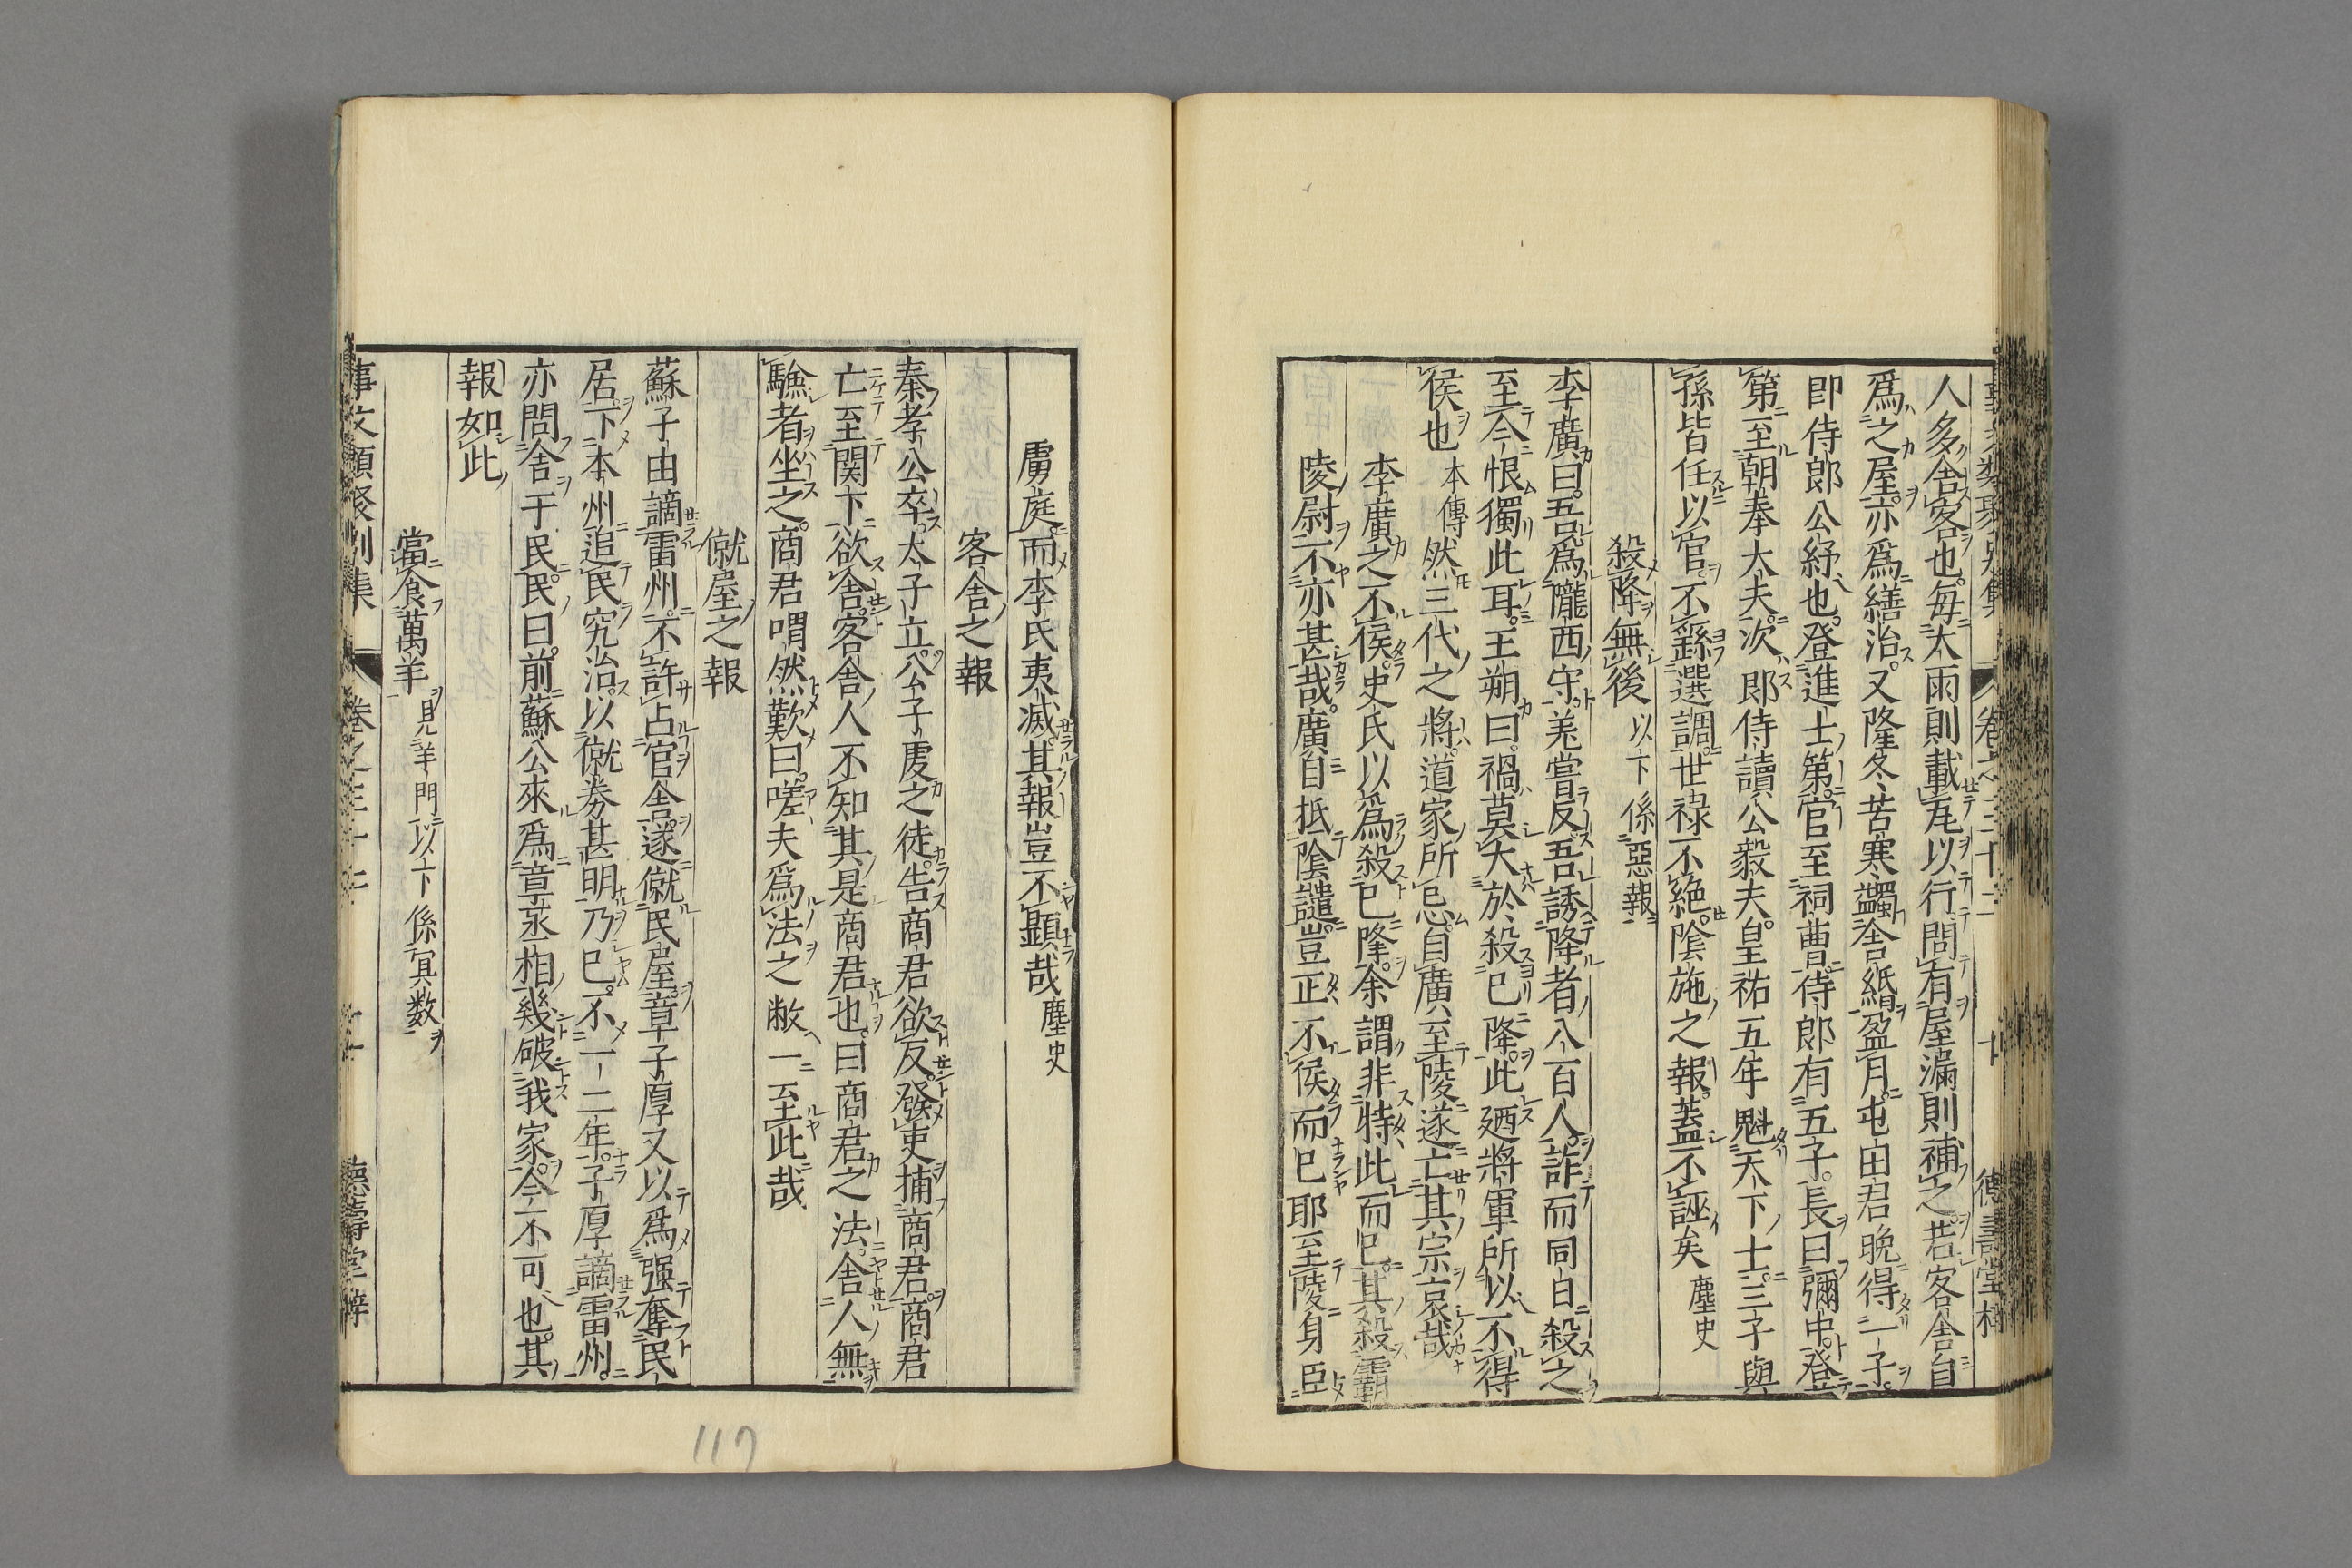 人多舍客也。每大雨則載瓦以行問有屋漏則補之若客舍自
爲之屋亦爲繕治。又隆冬苦寒蠲舍緡盈月屯田君晩得一子。
卽侍郎公紓也。登進士第。官至祠曹侍郎有五子。長曰彌中。登
第至朝奉大夫。次郎侍讀公毅夫。皇祐五年魁天下士三子與
孫皆任以官不繇選調世祿不絶。陰施之報。蓋不誣矣 塵史
殺降無後 以下係惡報
李廣曰。吾爲隴西守。羌嘗反吾誘降者八百人。詐而同日殺之
至今恨獨此耳。王朔曰。禍莫大於殺已降。此廼將軍所以不得
侯也 本傳 然三代之將。道家所忌。自廣至陵遂亡其宗哀哉
李廣之不侯。史氏以爲殺已隆。余謂非特此而已。其殺霸
陵尉不亦甚哉。廣自抵陰譴。豈正不侯而已耶至陵身臣
虜庭而李氏夷滅其報豈不顯哉 塵史
客舍之報
秦孝公卒。太子立。公子虔之徒。告商君欲反。發吏捕商君。商君
亡至関下欲舍客舍人不知其是商君也。曰商君之法。舍人無
驗者坐之。商君喟然歎曰。嗟夫爲法之敝一至此哉
僦屋之報
蘇子由謫雷州不許占官舍遂僦民屋章子厚又以爲强奪民
居。下本州追民究治。以僦劵甚明乃已。不一二年。子厚謫雷州。
亦問舍于民。民曰。前蘇公來爲章丞相幾破我家。今不可也。其
報如此
當食萬羊 見羊門以下係冥数
卷之三十二
德壽堂梓